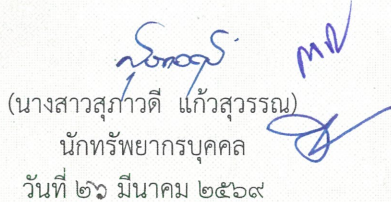 (นางสาวสุภาวดี แก้วสุวรรณ)
นักทรัพยากรบุคคล
วันที่ ๒๖ มีนาคม ๒๕๖๙